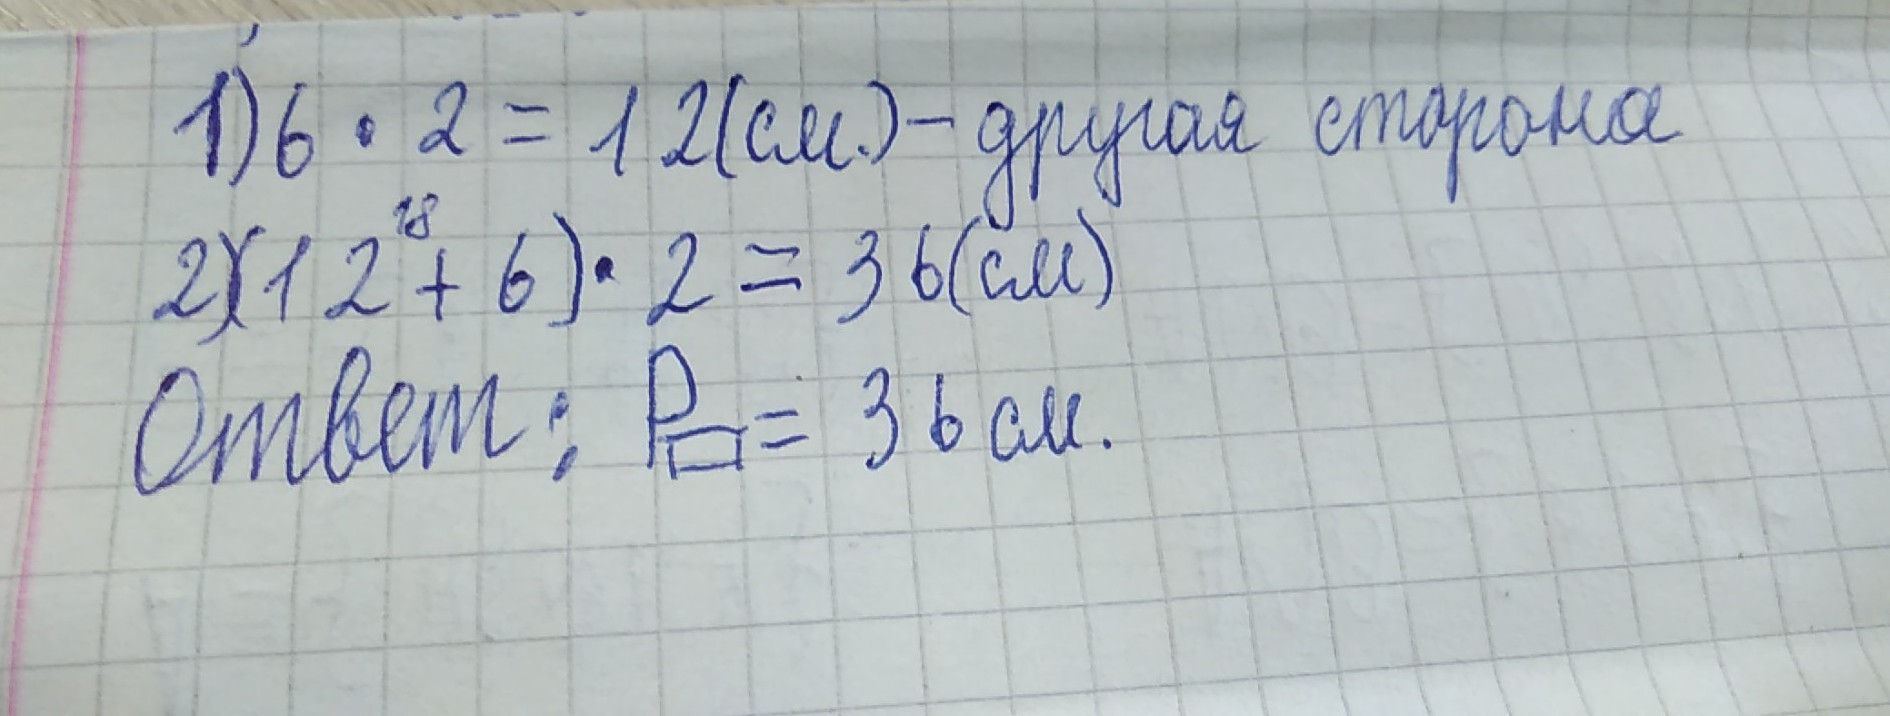 1) 6 · 2 = 12 (см.) – другая сторона
18
2) (12 + 6) · 2 = 36 (см)
Ответ: P▭ = 36 см.